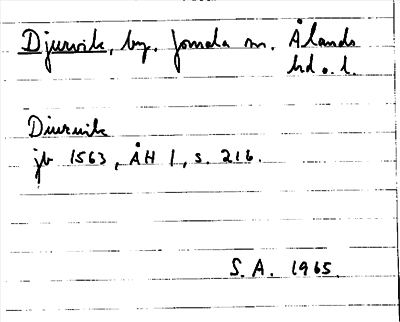 Djurvik, by. Jomala sn. Ålands
hd o. l.
Diuruik
jb 1563, ÅH 1, s. 216.
S. A. 1965.